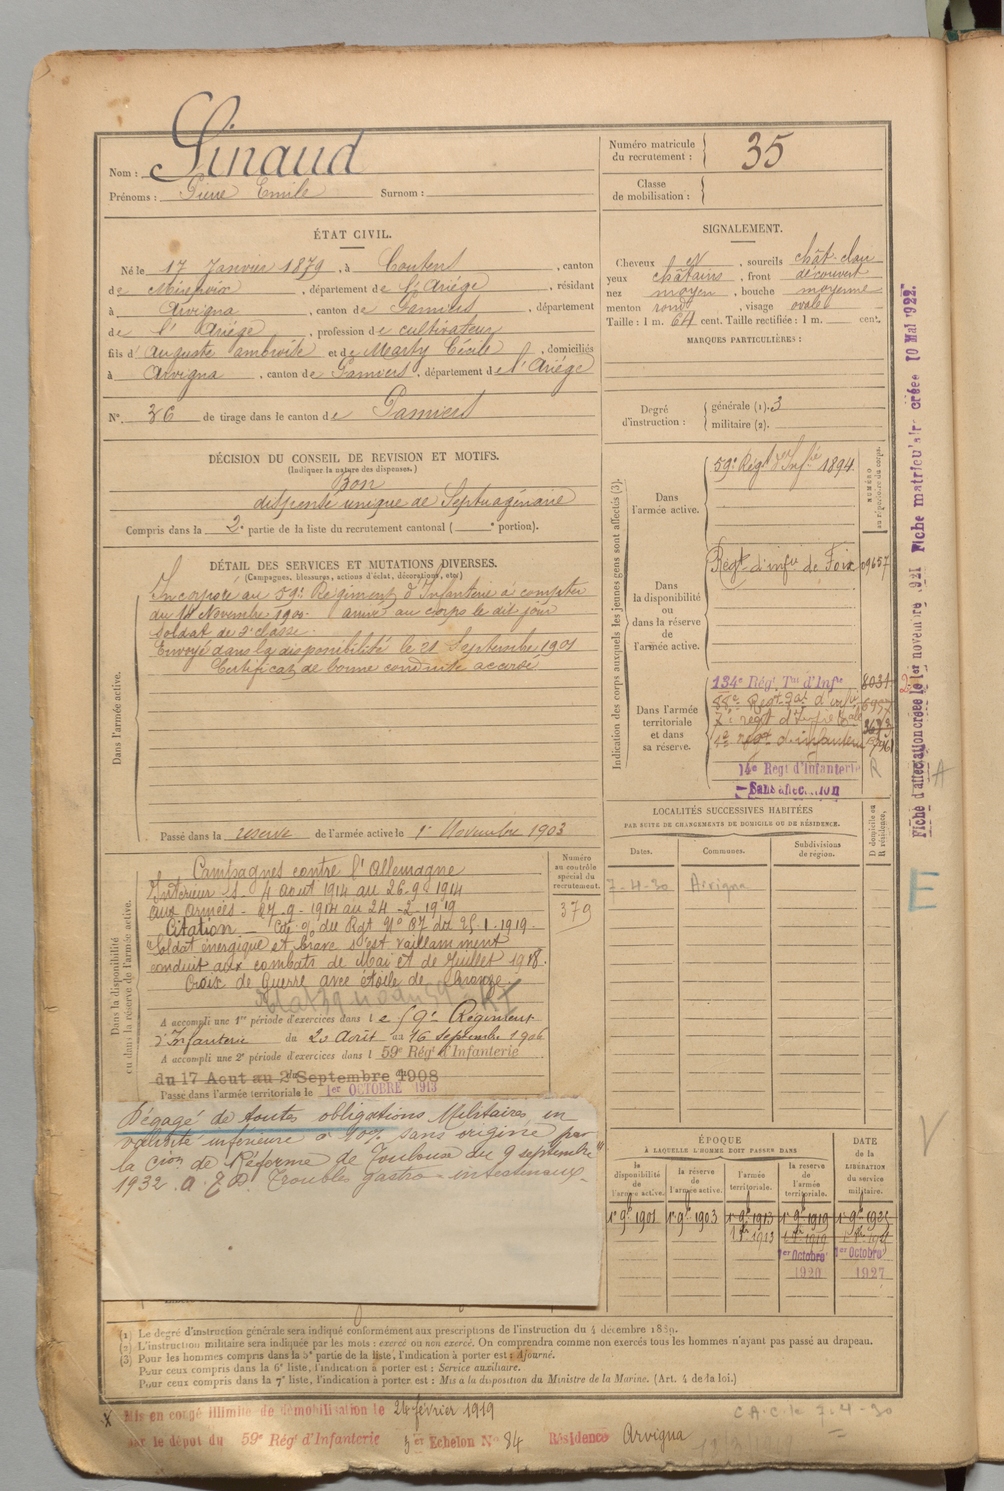 Nom : Sinaud
Prénoms : Pierre Emile Surnom :
Numéro matricule du recrutement : 35
Classe de mobilisation :
ÉTAT CIVIL.
Né le 17 Janvier 1879, à Coutens, canton
de Mirepoix, département de l'Ariége, résidant
à Arvigna, canton de Pamiers, département
de l'Ariége, profession de cultivateur
fils d'Auguste Ambroise et de Marty Cécile, domiciliés
à Arvigna, canton de Pamiers, département de l'Ariége
N° 36 de tirage dans le canton de Pamiers
SIGNALEMENT.
Cheveux et, sourcils chât. clair
yeux châtains, front découvert
nez moyen, bouche moyenne
menton rond, visage ovale
Taille : 1 m. 64 cent. Taille rectifiée : 1 m. cent.
MARQUES PARTICULIÈRES :
Degré d'instruction : générale (1). 3
militaire (2).
DÉCISION DU CONSEIL DE REVISION ET MOTIFS.
(Indiquer la nature des dispenses.)
Bon
dispensé unique de Septuagénaire
Compris dans la 2e partie de la liste du recrutement cantonal ( e portion).
DÉTAIL DES SERVICES ET MUTATIONS DIVERSES.
(Campagnes, blessures, actions d'éclat, décorations, etc.)
Dans l'armée active.
Incorporé au 59e Régiment d'Infanterie à compter
du 14 Novembre 1900. arrivé au corps le dit jour
soldat de 2e classe.
Envoyé dans la disponibilité le 21 Septembre 1901
Certificat de bonne conduite accordé
Passé dans la réserve de l'armée active le 1er Novembre 1903
Indication des corps auxquels les jeunes gens sont affectés (3).
NUMÉRO au répertoire du corps.
Dans l'armée active.
59e Régt d'Infie 1894
Dans la disponibilité ou dans la réserve de l'armée active.
Régt d'infie de Foix 09657
Dans l'armée territoriale et dans sa réserve.
134e Rég. Tal d'Infie
14e Régt d'Infanterie R
Sans affectation
Fiche d'affectation créée le 1er novembre 1921 Fiche matriculaire créée 10 Mai 1922.
Dans la disponibilité ou dans la réserve de l'armée active.
Numéro au contrôle spécial du recrutement.
379
Campagnes contre l'Allemagne
Intérieur S. 4 aout 1914 au 26-9-1914
aux Armées - 27-9-1914 au 24-2-1919
Citation - du Rgt N° 87 du 25-1-1919.
"Soldat énergique et brave s'est vaillamment
conduit aux combats de Mai et de Juillet 1918.
Croix de Guerre avec étoile de Bronze
A accompli une 1re période d'exercices dans le 59e Régiment
d'Infanterie du 20 Août au 16 septembre 1906
A accompli une 2e période d'exercices dans l 59e Rég d'Infanterie
du 17 Aout au 2 Septembre 1908
Passé dans l'armée territoriale le 1er OCTOBRE 1913
Dégagé de toutes obligations Militaires, in-
validité inférieure à 10% sans origine par
la Cion de Réforme de Toulouse du 9 septembre
1932. Troubles gastro-intestinaux.
LOCALITÉS SUCCESSIVES HABITÉES
PAR SUITE DE CHANGEMENTS DE DOMICILE OU DE RÉSIDENCE.
Dates. Communes. Subdivisions de région. D domicile ou R résidence.
7-4-30 Arvigna
A
E
V
ÉPOQUE
À LAQUELLE L'HOMME DOIT PASSER DANS
DATE de la LIBÉRATION du service militaire.
la disponibilité de l'armée active. la réserve de l'armée active. l'armée territoriale. la réserve de l'armée territoriale.
1er 9bre 1901 1er 9bre 1903 1er 9bre 1913 1er 9bre 1919 1er 9bre 1925
1er Octobre 1920 1er Octobre 1927
(1) Le degré d'instruction générale sera indiqué conformément aux prescriptions de l'instruction du 4 décembre 1889.
(2) L'instruction militaire sera indiquée par les mots : exercé ou non exercé. On comprendra comme non exercés tous les hommes n'ayant pas passé au drapeau.
(3) Pour les hommes compris dans la 5e partie de la liste, l'indication à porter est : Ajourné.
Pour ceux compris dans la 6e liste, l'indication à porter est : Service auxiliaire.
Pour ceux compris dans la 7e liste, l'indication à porter est : Mis à la disposition du Ministre de la Marine. (Art. 4 de la loi.)
X Mis en congé illimité de démobilisation le 24 février 1919
par le dépôt du 59e Rég. d'Infanterie 3er Echelon N° 84 Résidence Arvigna
C.A.C. le 7-4-30